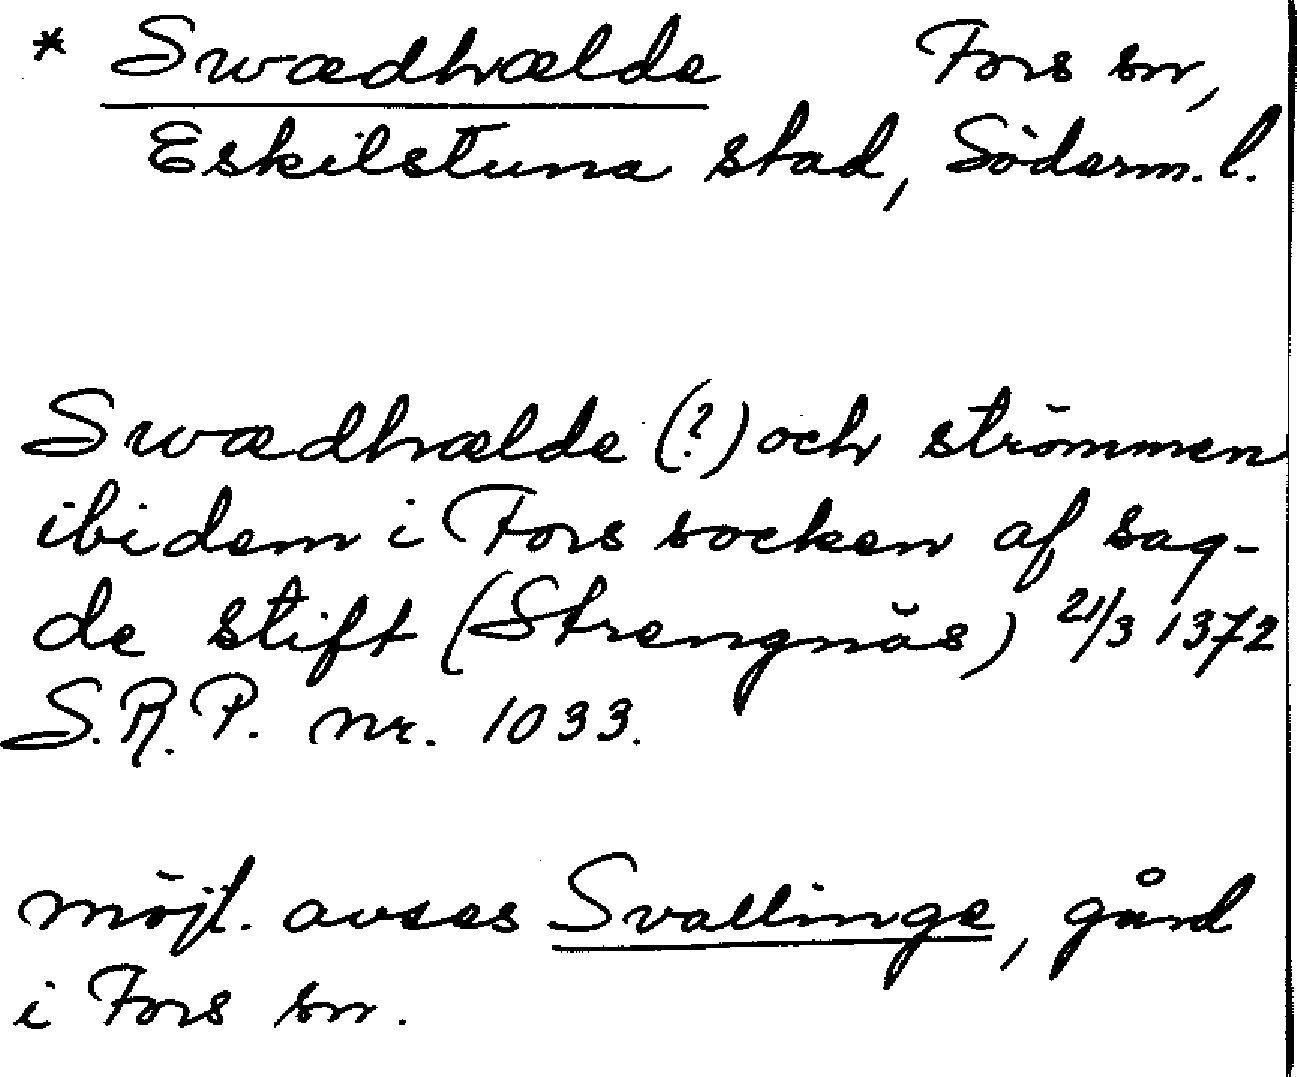 * Swædhælde Fors sn,
Eskilstuna stad, Söderm. l.
Swædhælde (?) och strömmen
ibidem i Fors socken af sag-
de stift (Strengnäs) 21/3 1372
S.R.P. nr. 1033.
möjl. avses Svallinge, gård
i Fors sn.